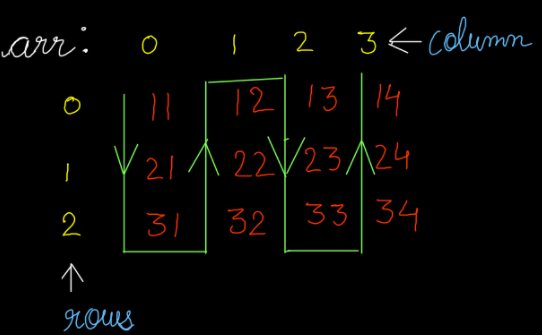 arr: 0 1 2 3 ← column
0 11 12 13 14
1 21 22 23 24
2 31 32 33 34
rows